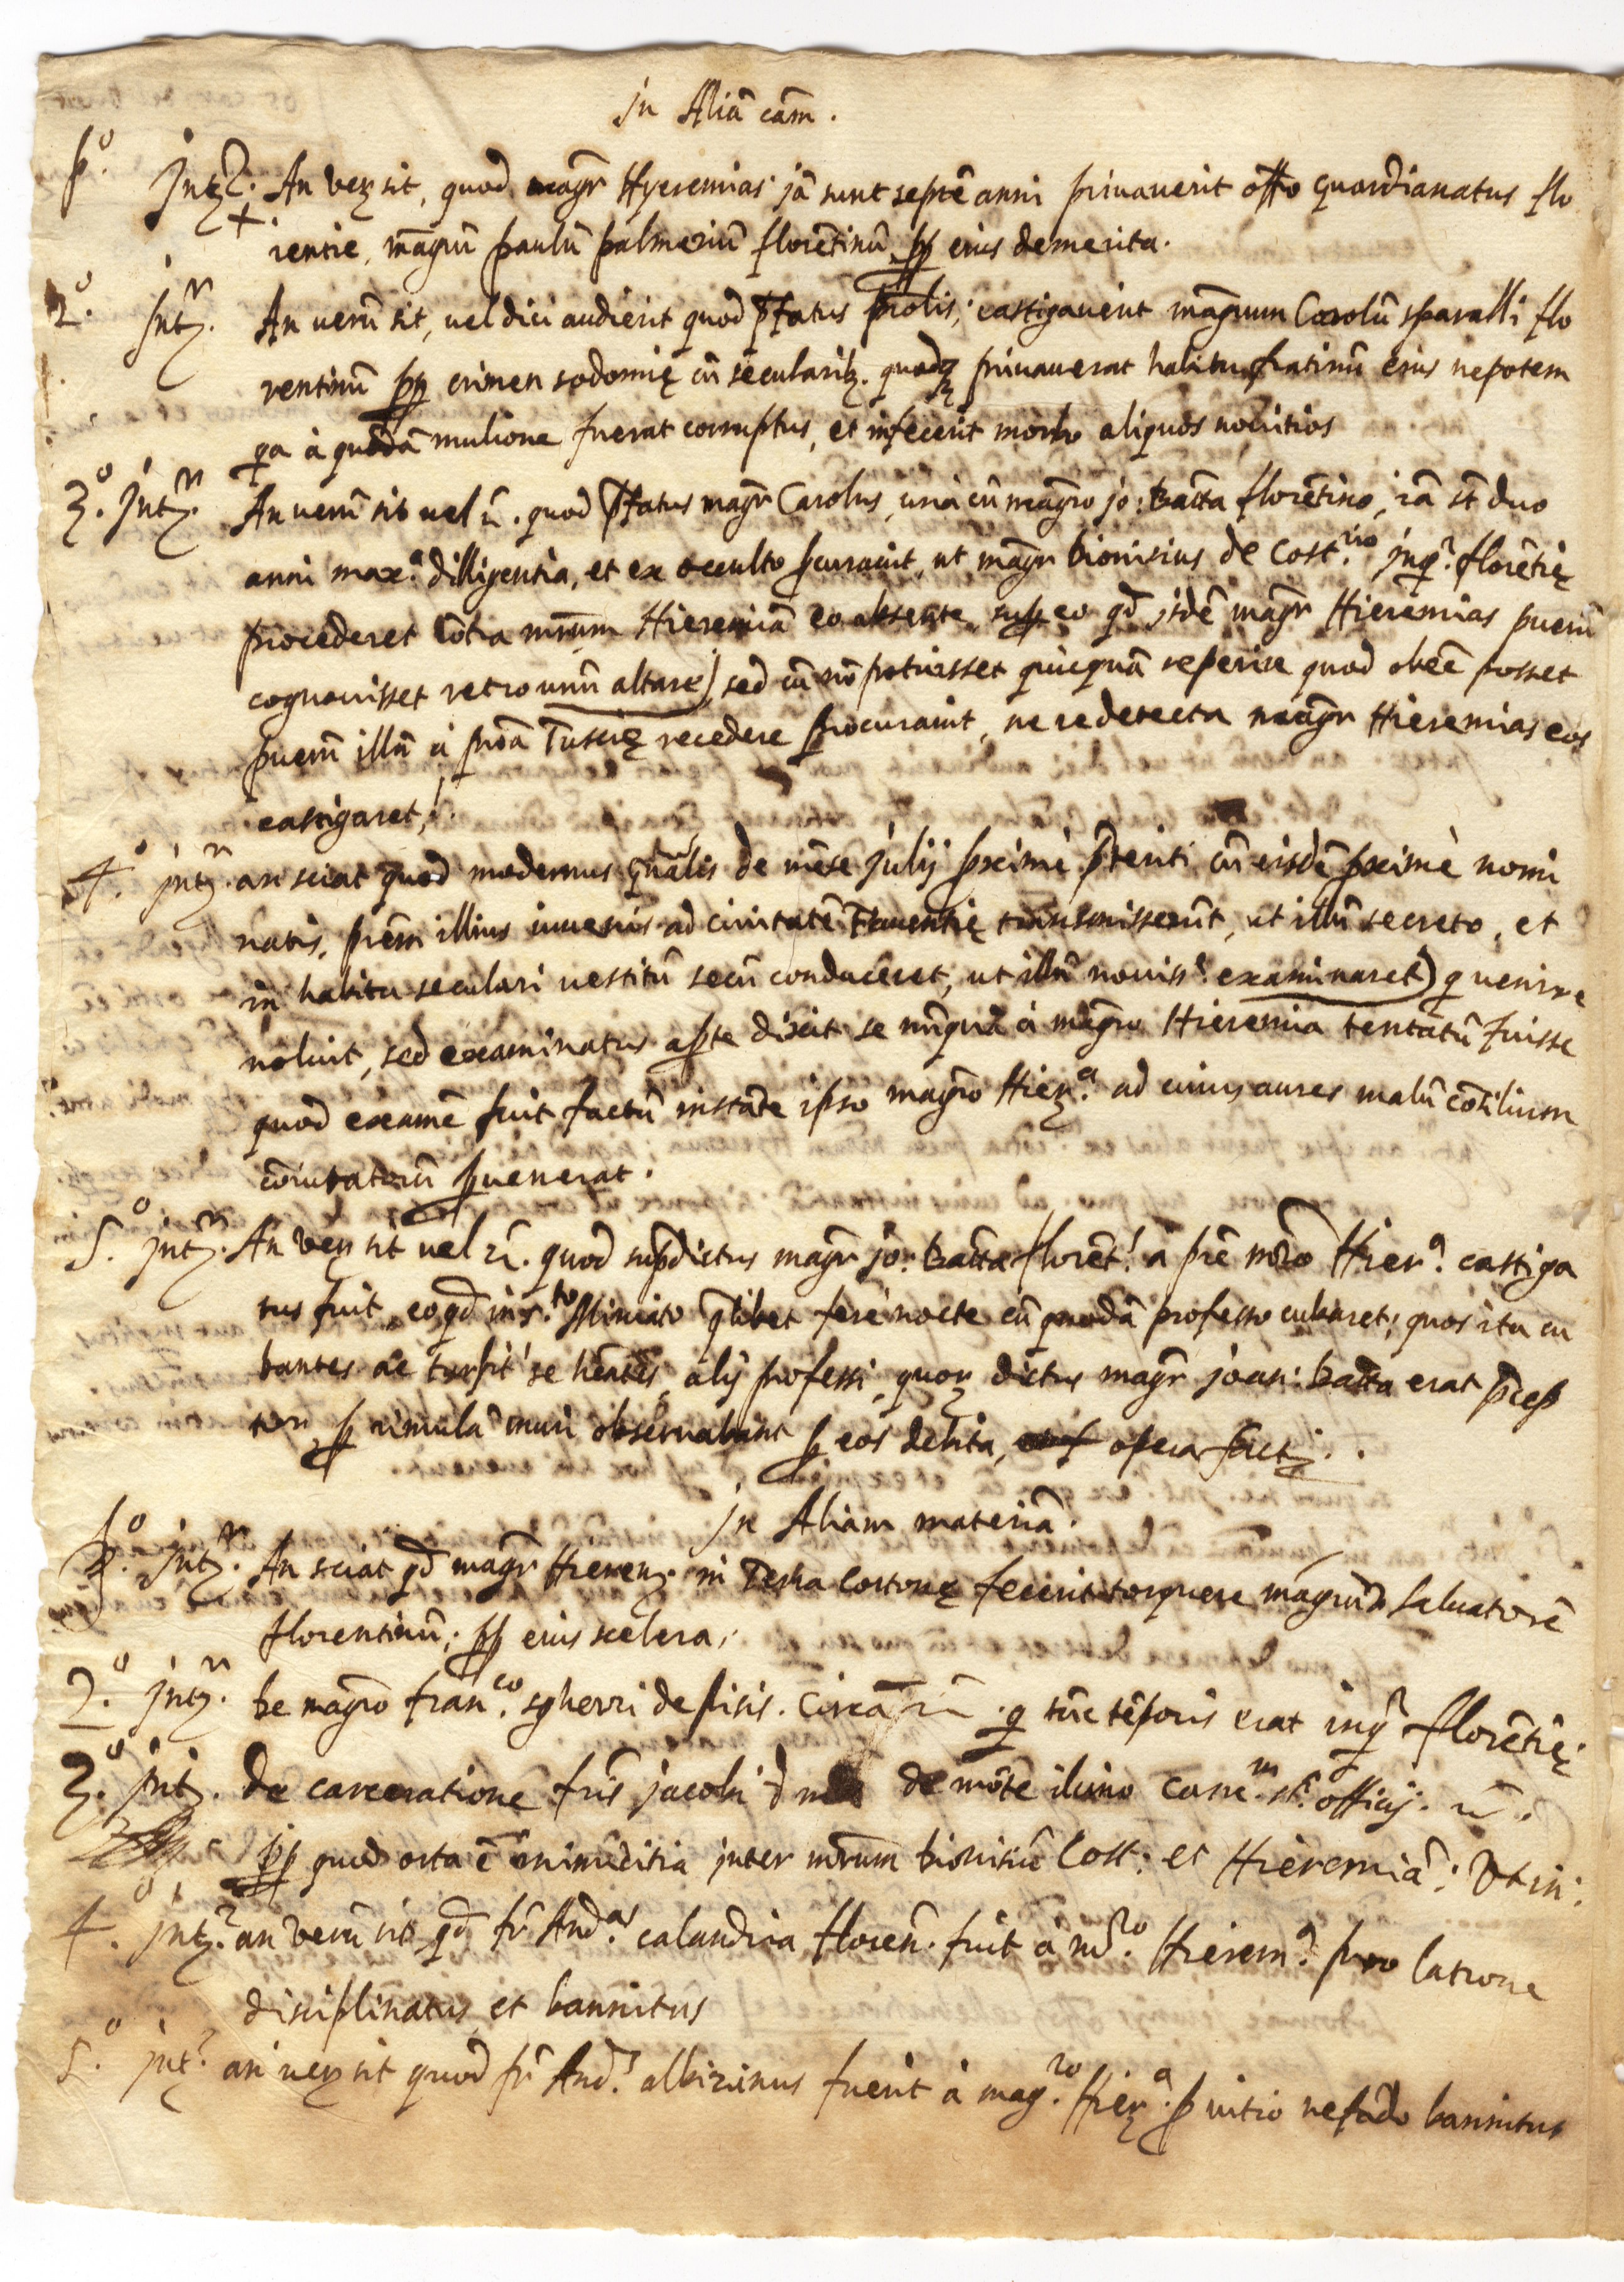 jn Aliā cām.
p.º jntʒ. An veʒ sit, quod magr̄ Hyeremias jā sunt septē anni priuauerit offo guardianatus flo
rentie, māgrū paulū palmeriū florētinū, pp eius demerita.
2.º jntʒ. An uerū sit, uel dici audierit quod pfatus prōlis, castigauerit māgrum Carolū sparalli flo
rentinū pp crimen sodomię cū secularibʒ. quodqʒ priuauerat habitu fratinū eius nepotem
qa à quodā mulione fuerat corruptus, et infecerit morbo aliquos nouitios
3.º jntʒ. An uerū sit uel r̄. quod pfatus magr̄ Carolus, unà cū magro jo: Batta florētino, iā st̄ duo
anni max.ª dilligentia, et ex occulto pcurauit, ut magr̄ Dionisius de Cost.rio jnqr. florētię
procederet cōtra mrūm Hieremiā eo absente, sup eo qd jsdē magr̄ Hieremias puerū
cognouisset retro unū altare) sed cū nō potuisset quicquā reperire quod obeē posset
puerū illū à proā Tuscię recedere procurauit, ne re detecta magr̄ Hieremias eos
castigaret.
4.º jntʒ. an sciat quod modernus gn̄alis de mēse julij pximè pteriti cū eisdē pximè nomi
natis, prēm illius iuuenis ad ciuitatē Fauentię transmisserūt, ut illū secreto, et
in habitu seculari uestitū secū conduceret, ut illū nouiss.e examinaret) q uenire
noluit, sed examinatus apte dixit se nūquā à māgro Hieremia tentatū fuisse
quod examē fuit factū instāte ipso magrō Hierʒ.ª ad cuius aures malū cōsilium
cōiuratorū puenerat.
5.º jntʒ. An veʒ sit uel r̄. quod supdictus magr̄ jo: Batta florēt! à prē mrō Hier.ª castiga
tus fuit, eo qd in s.to Miniato qlibet ferè nocte cū quodā professo cubaret; quos ita cu
bantes ac turpit' se hēntes, alij professi, quoʒ dictus magr̄ joan: Batta erat pcep
tor, p rimulā muri obseruabant p eos dedita, opera factʒ.
jn Aliam materiā.
p.º jntʒ. An sciat qd magr̄ Hieremʒ. in Terra Cortonę fecerit torquere māgrū Saluatorē
florentinū; pp eius scelera;
2.º jntʒ. De magrō fran.co sgherri de pisis. Circa r̄ . q tūc tēporis erat inqr florētię.
3.º jntʒ. De carceratione fris jacobi de mōte ilcino canc.m st.i officij. r̄.
pp quod orta ē inimicitia jnter mrūm Dionisiū Cost: et Hieremiā: Vtin:
4.º jntʒ. an verū sit qd fr̄ And.as calandria floren. fuit à mr.ro Hierem.ª pro latrone
disciplinatus et bannitus
5.º jntʒ. an ueʒ sit quod fr̄ And.s albizinus fuerit à mag.ro Hierʒ.ª p uitio nefādo bannitus